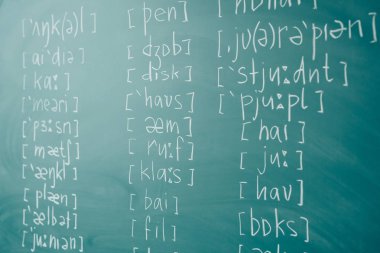 ['ʌŋk(ə)l]
[aɪ'dɪə]
[kaː]
['meəri]
['pɜːsn]
[mætʃ]
['æŋkl]
[plæn]
['ælbət]
['juːniən]
[pen]
[dʒɒb]
[disk]
['haus]
[æm]
[ruːf]
[klaːs]
[bai]
[fil]
[ˌju(ə)rə'piən]
['stjuːdnt]
['pjuːpl]
[hai]
[juː]
[hav]
[bɒks]